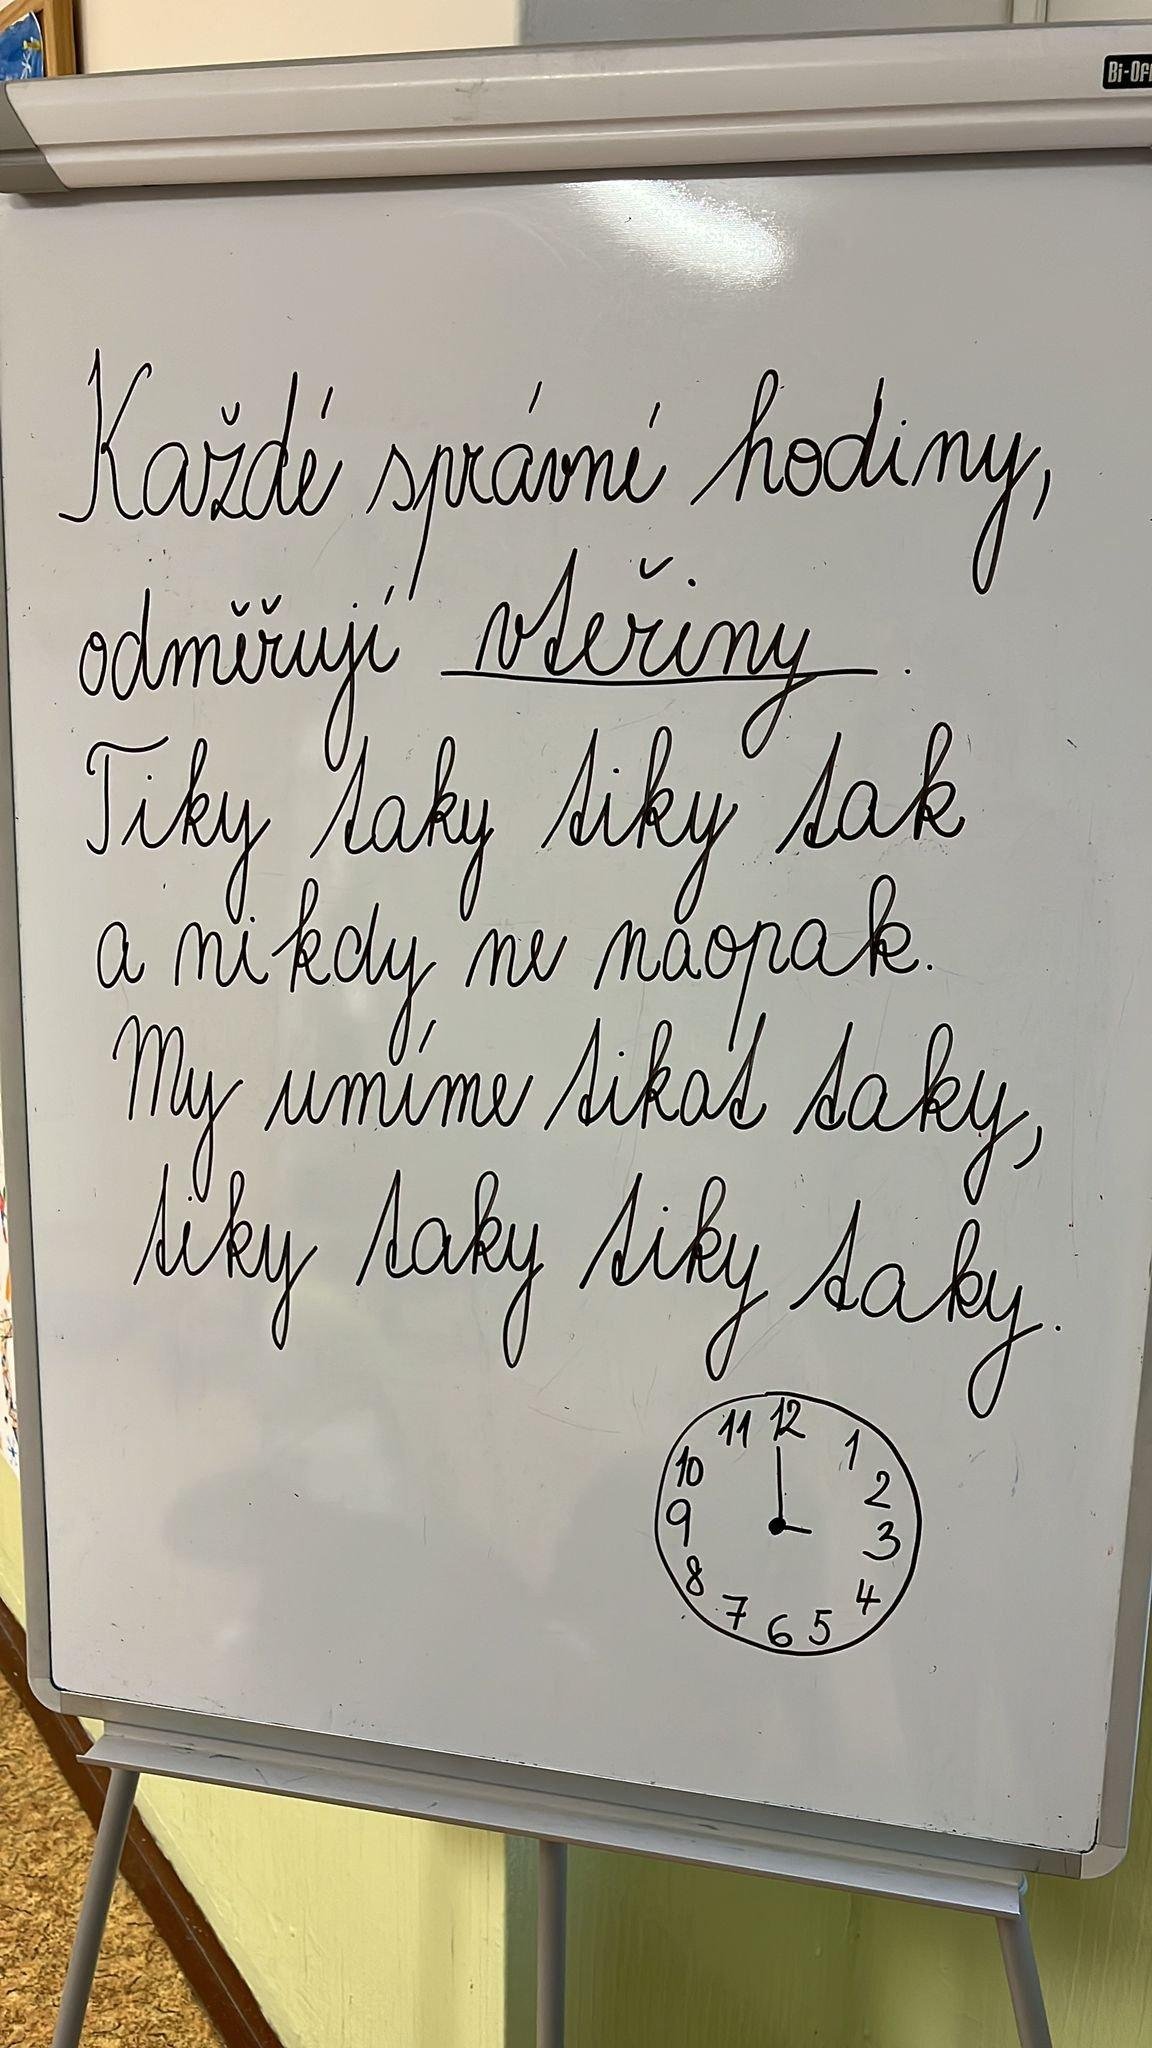 Bi-Off
Každé správné hodiny,
odměřují vteřiny.
Tiky taky tiky tak
a nikdy ne naopak.
My umíme tikat taky,
tiky taky tiky taky.
11 12 1
10 2
9 3
8 4
7 6 5